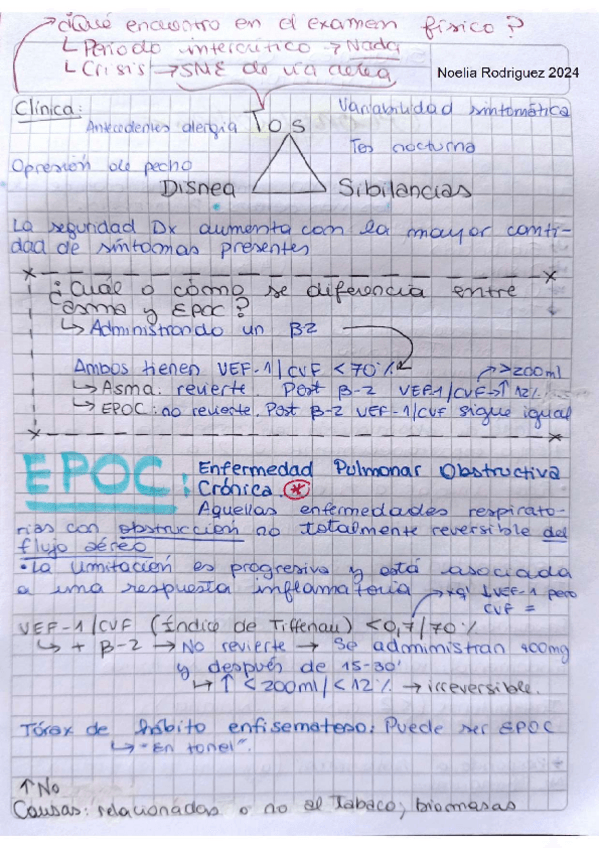 ¿Qué encuentro en el examen físico?
↳ Periodo intercrítico → Nada
↳ Crisis → SNE de vía aérea
Noelia Rodriguez 2024
Clínica:
Variabilidad sintomática
Antecedentes alergia
Tos
Tos nocturna
Opresión de pecho
Disnea
Sibilancias
La seguridad Dx aumenta con la mayor canti-
dad de síntomas presentes
¿Cuále o cómo se diferencia entre
asma y EPOC?
↳ Administrando un B2
Ambos tienen VEF-1/CVF <70%
>200ml
↳ Asma: revierte. Post β-2 VEF1/CVF→↑ 12%
↳ EPOC: no revierte. Post β-2 VEF-1/CVF sigue igual
EPOC: Enfermedad Pulmonar Obstructiva
Crónica. *
Aquellas enfermedades respirato-
rias con obstrucción no totalmente reversible del
flujo aéreo
• La limitación es progresiva y está asociada
a una respuesta inflamatoria
→ xq' ↓VEF-1 pero
CVF =
VEF-1/CVF (Índice de Tiffenau) <0,7/70%
↳ + B-2 → No revierte → Se administran 400mg
y después de 15-30'
↳ ↑ <200ml/<12% → irreversible.
Tórax de hábito enfisematoso: Puede ser EPOC
↳ "En tonel".
↑No
Causas: relacionadas o no al Tabaco; biomasas